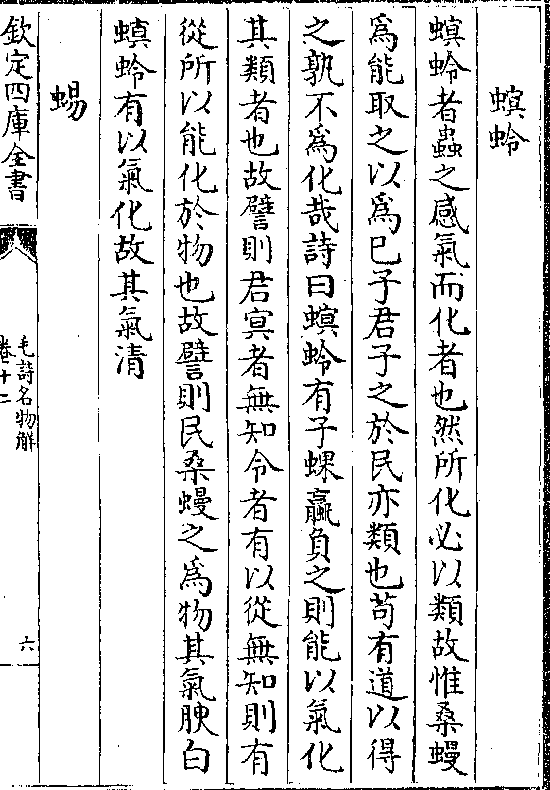 螟蛉
螟蛉者蟲之感氣而化者也然所化必以類故惟桑蟃
爲能取之以爲已子君子之於民亦類也苟有道以得
之孰不爲化哉詩曰螟蛉有子蜾蠃負之則能以氣化
其類者也故譬則君㝠者無知令者有以從無知則有
從所以能化於物也故譬則民桑蟃之爲物其氣腴白
螟蛉有以氣化故其氣清
蜴
欽定四庫全書
毛詩名物解
卷十二
六